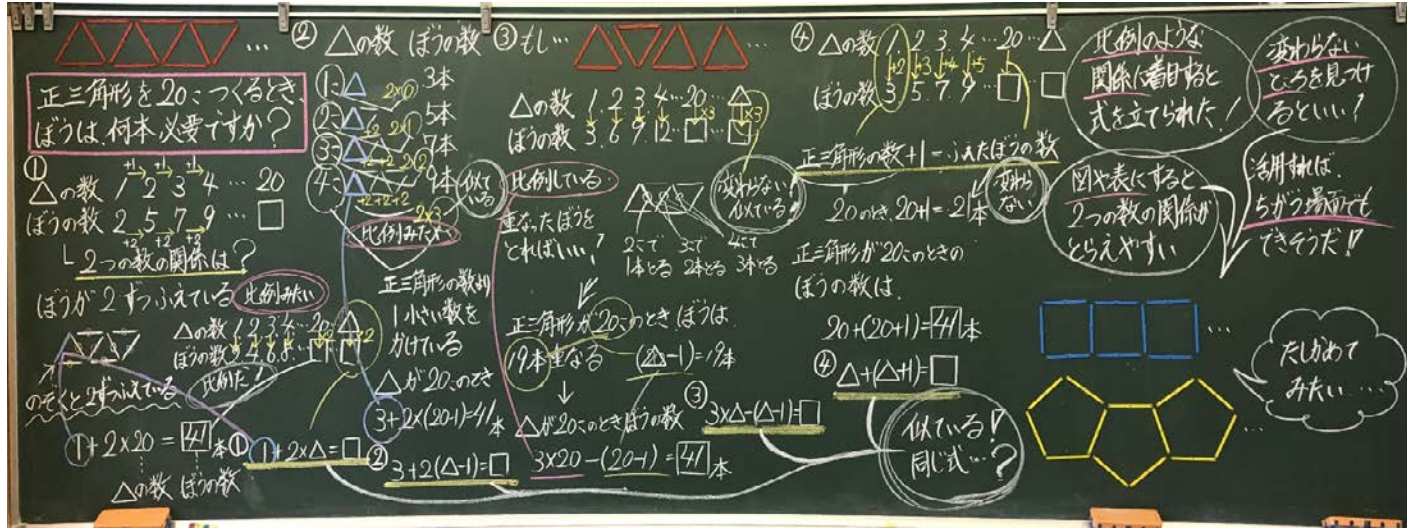 正三角形を20こつくるとき、
ぼうは、何本必要ですか?
①
+1 +1 +1
△の数 1 2 3 4 … 20
ぼうの数 2 5 7 9 … □
+2 +2 +2
2つの数の関係は?
ぼうが2ずつふえている 比例みたい
△の数 1 2 3 4 … 20 △
ぼうの数 2 4 6 8 … □ □
×2 ×2
のぞくと2ずつふえている
比例だ!
1+2×20=41本
△の数 ぼうの数
① 1+2×△=□
② △の数 ぼうの数
1こ △ 2×0 3本
2こ +2 2×1 5本
3こ +2+2 2×2 7本
4こ +2+2+2 2×3 9本
似ている
比例みたい
正三角形の数より
1小さい数を
かけている
△が20このとき
3+2×(20-1)=41本
② 3+2(△-1)=□
③ もし…
△の数 1 2 3 4 … 20 … △
ぼうの数 3 6 9 12 … □ … □
×3 ×3
比例している
変わらない!
似ている!
重なったぼうを
とればいい!
2こで 3こで 4こで
1本とる 2本とる 3本とる
正三角形が20このとき ぼうは
19本重なる (△-1)=19本
↓
△が20このときぼうの数
3×20-(20-1)=41本
③ 3×△-(△-1)=□
④ △の数 1 2 3 4 … 20 … △
+2 +3 +4 +5
ぼうの数 3 5 7 9 … □ □
正三角形の数+1=ふえたぼうの数
20のとき 20+1=21本
変わらない
正三角形が20このときの
ぼうの数は、
20+(20+1)=41本
④ △+(△+1)=□
似ている!
同じ式…?
比例のような
関係に着目すると
式を立てられた!
変わらない
ところを見つけ
るといい!
図や表にすると
2つの数の関係が
とらえやすい
活用すれば、
ちがう場面でも
できそうだ!!
たしかめて
みたい……